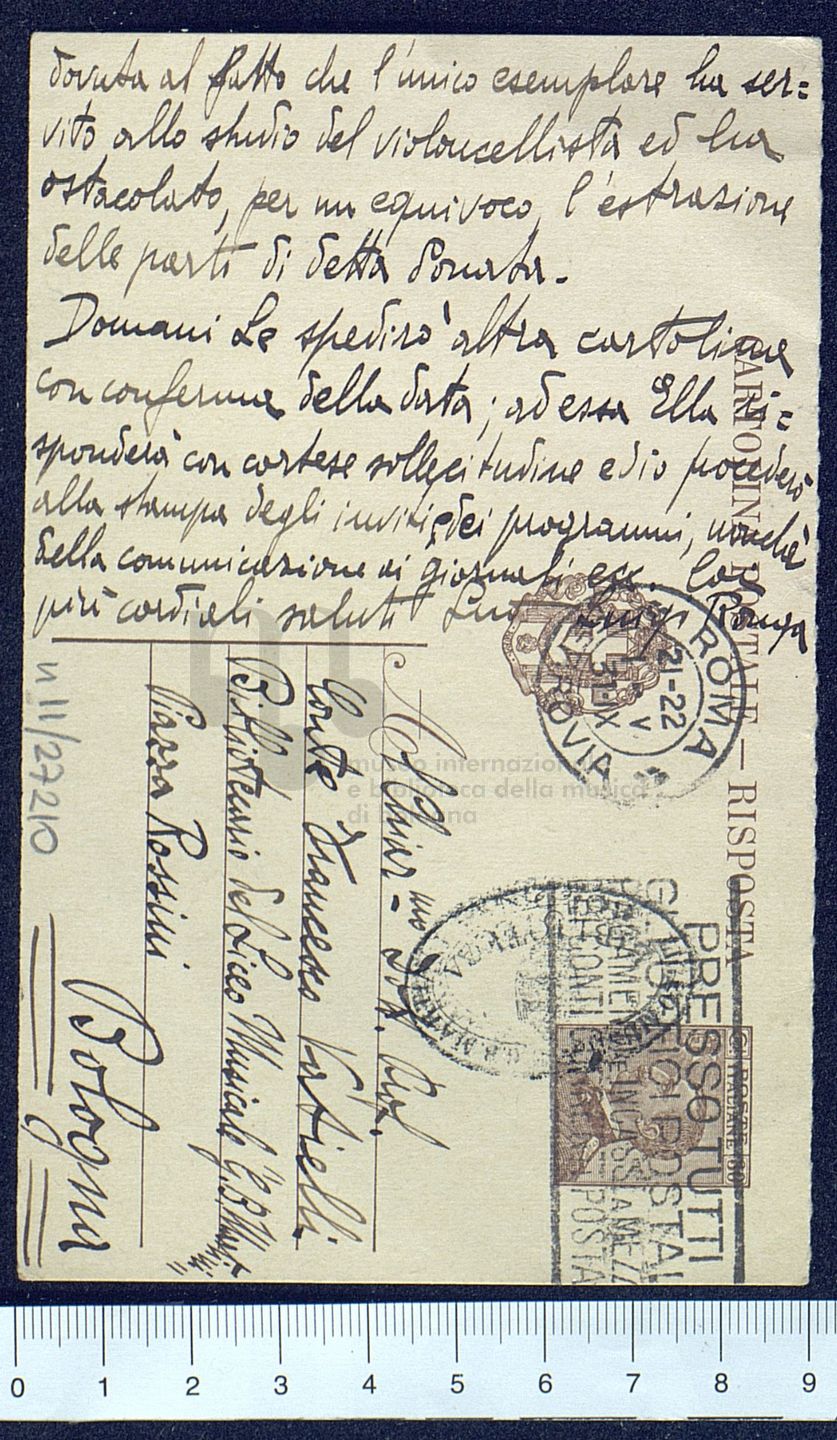 dovuta al fatto che l'unico esemplare ha ser=
vito allo studio del violoncellista ed ha
ostacolato, per un equivoco, l'estrazione
delle parti di detta Sonata.
Domani Le spedirò altra cartolina
con conferma della data; ad essa Ella ri=
sponderà con cortese sollecitudine ed io procederò
alla stampa degli inviti e dei programmi, nonchè
della comunicazione ai giornali ecc. Coi
più cordiali saluti Suo Luigi Ronga
CARTOLINA POSTALE — RISPOSTA
ROMA
FERROVIA
21-22
31
V
IX
museo internazionale
e biblioteca della musica
di bologna
A Chiar.mo Dott. Prof.
Conte Francesco Vatielli
Bibliotecario del Liceo Musicale "G. B. Martini"
Piazza Rossini
Bologna
n. 11/27210
POSTE ITALIANE
PRESSO TUTTI
GLI UFFICI POSTALI
PAGAMENTI E INCASSI A MEZZO
CONTI CORRENTI POSTALI
0 1 2 3 4 5 6 7 8 9